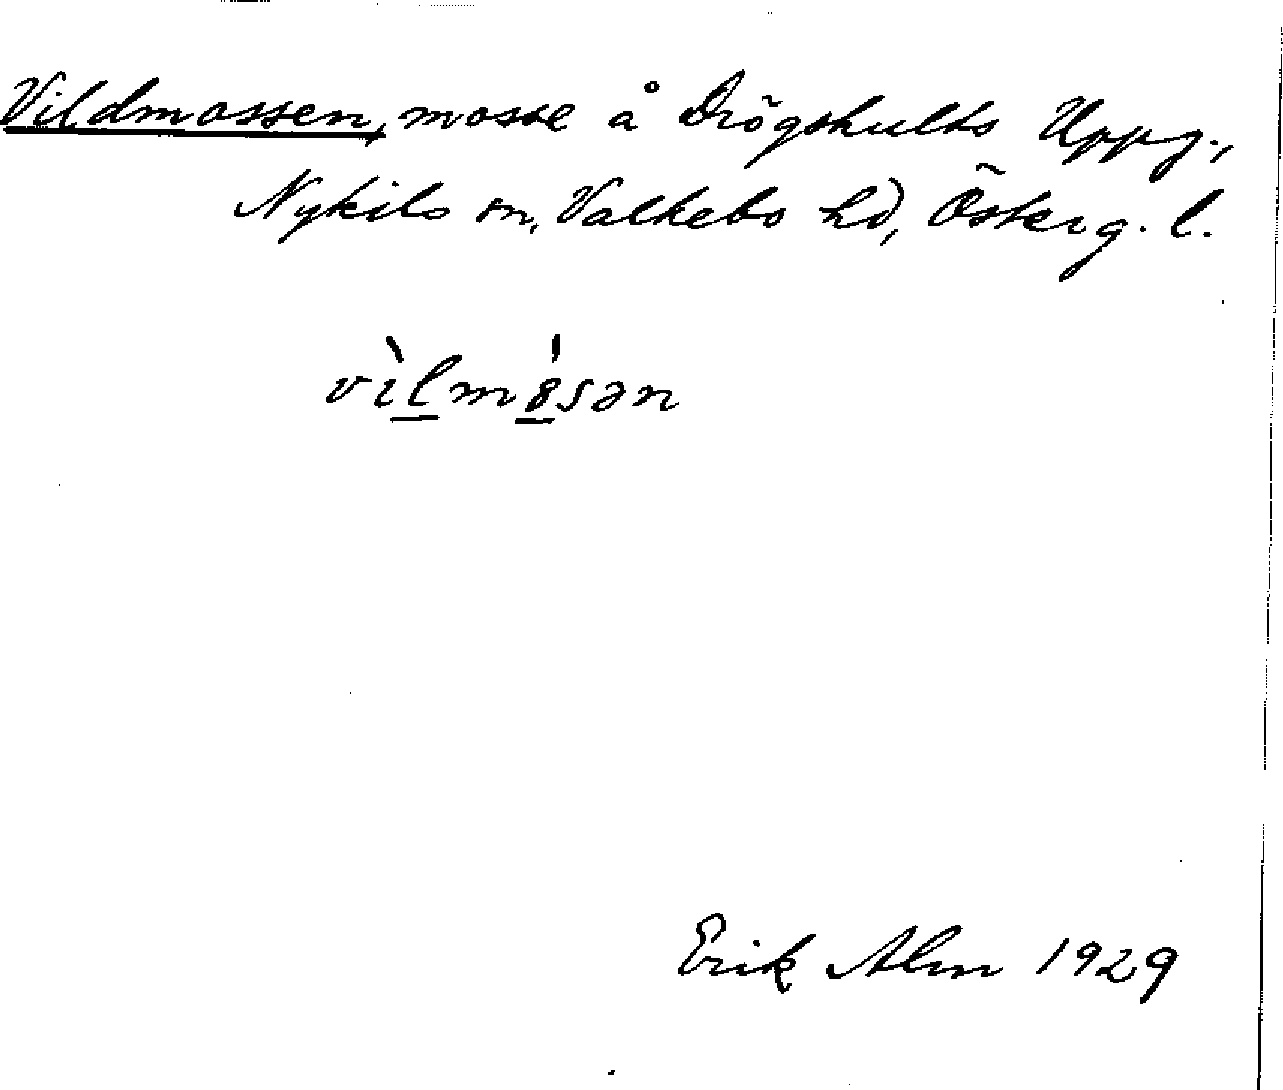 Vildmossen, mosse å Drögshults Uppg.,
Nykils sn, Valkebo hd, Österg. l.
vìlmösən
Erik Alm 1929